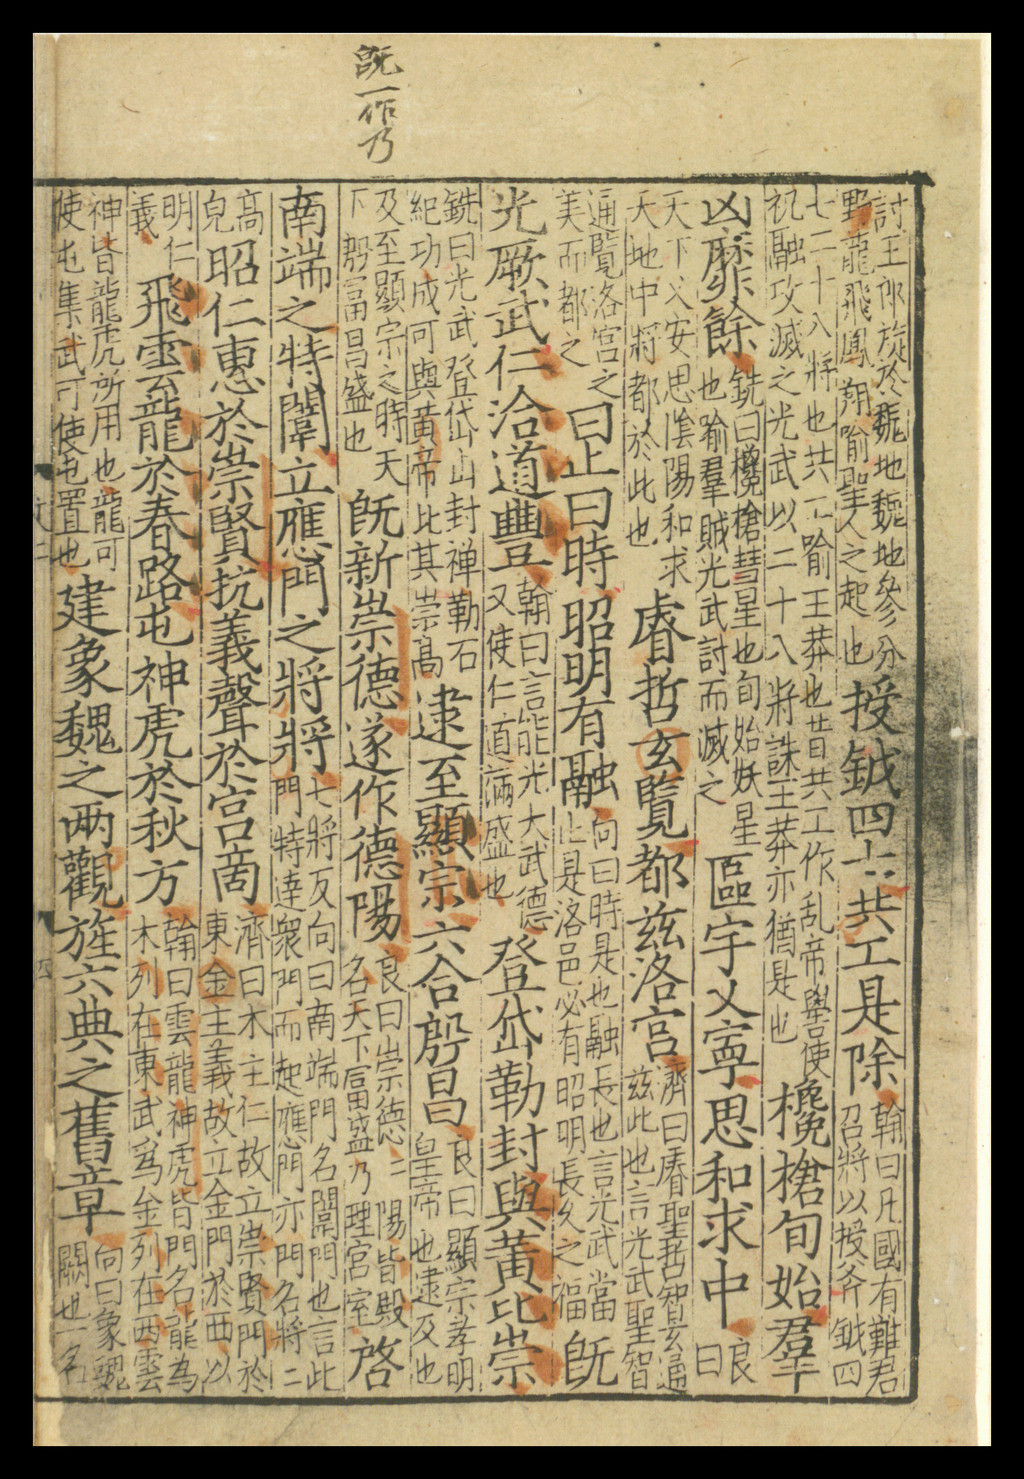 旣一作乃
討王郎旋於魏地魏地參分
野龍飛鳳翔喻聖人之起也
授鉞四七共工是除
翰曰凡國有難君
召將以授斧鉞四
七二十八將也共工喻王莽也昔共工作乱帝嚳使
祝融攻滅之光武以二十八將誅王莽亦猶是也
欃槍旬始羣
凶靡餘
銑曰欃槍彗星也旬始妖星
也喻羣賊光武討而滅之
區宇乂寧思和求中
良
曰
天下乂安思陰陽和求
天地中將都於此也
睿哲玄覽都兹洛宫
濟曰睿聖哲智玄逼
兹此也言光武聖智
逼覽洛宫之
美而都之
曰止曰時昭明有融
向曰時是也融長也言光武當
止是洛邑必有昭明長久之福
旣
光厥武仁洽道豐
翰曰言能光大武德
又使仁道滿盛也
登岱勒封與黃比崇
銑曰光武登岱山封禅勒石
紀功成可與黃帝比其崇髙
逮至顯宗六合殷昌
良曰顯宗孝明
皇帝也逮及也
及至顯宗之時天
下殷富昌盛也
旣新崇德遂作德陽
良曰崇徳〻陽皆殿
名天下冨盛乃理宮室
啓
南端之特闈立應門之將將
七將反向曰南端門名闈門也言此
門特達衆門而起應門亦門名將〻
髙
皃
昭仁惠於崇賢抗義聲於宫啇
濟曰木主仁故立崇賢門於
東金主義故立金門於西以
明仁
義
飛雲龍於春路屯神虎於秋方
翰曰雲龍神虎皆門名龍為
木列在東武為金列在西雲
神皆龍虎所用也龍可
使屯集武可使屯置也
建象魏之兩觀旌六典之舊章
向曰象魏
闕也一名